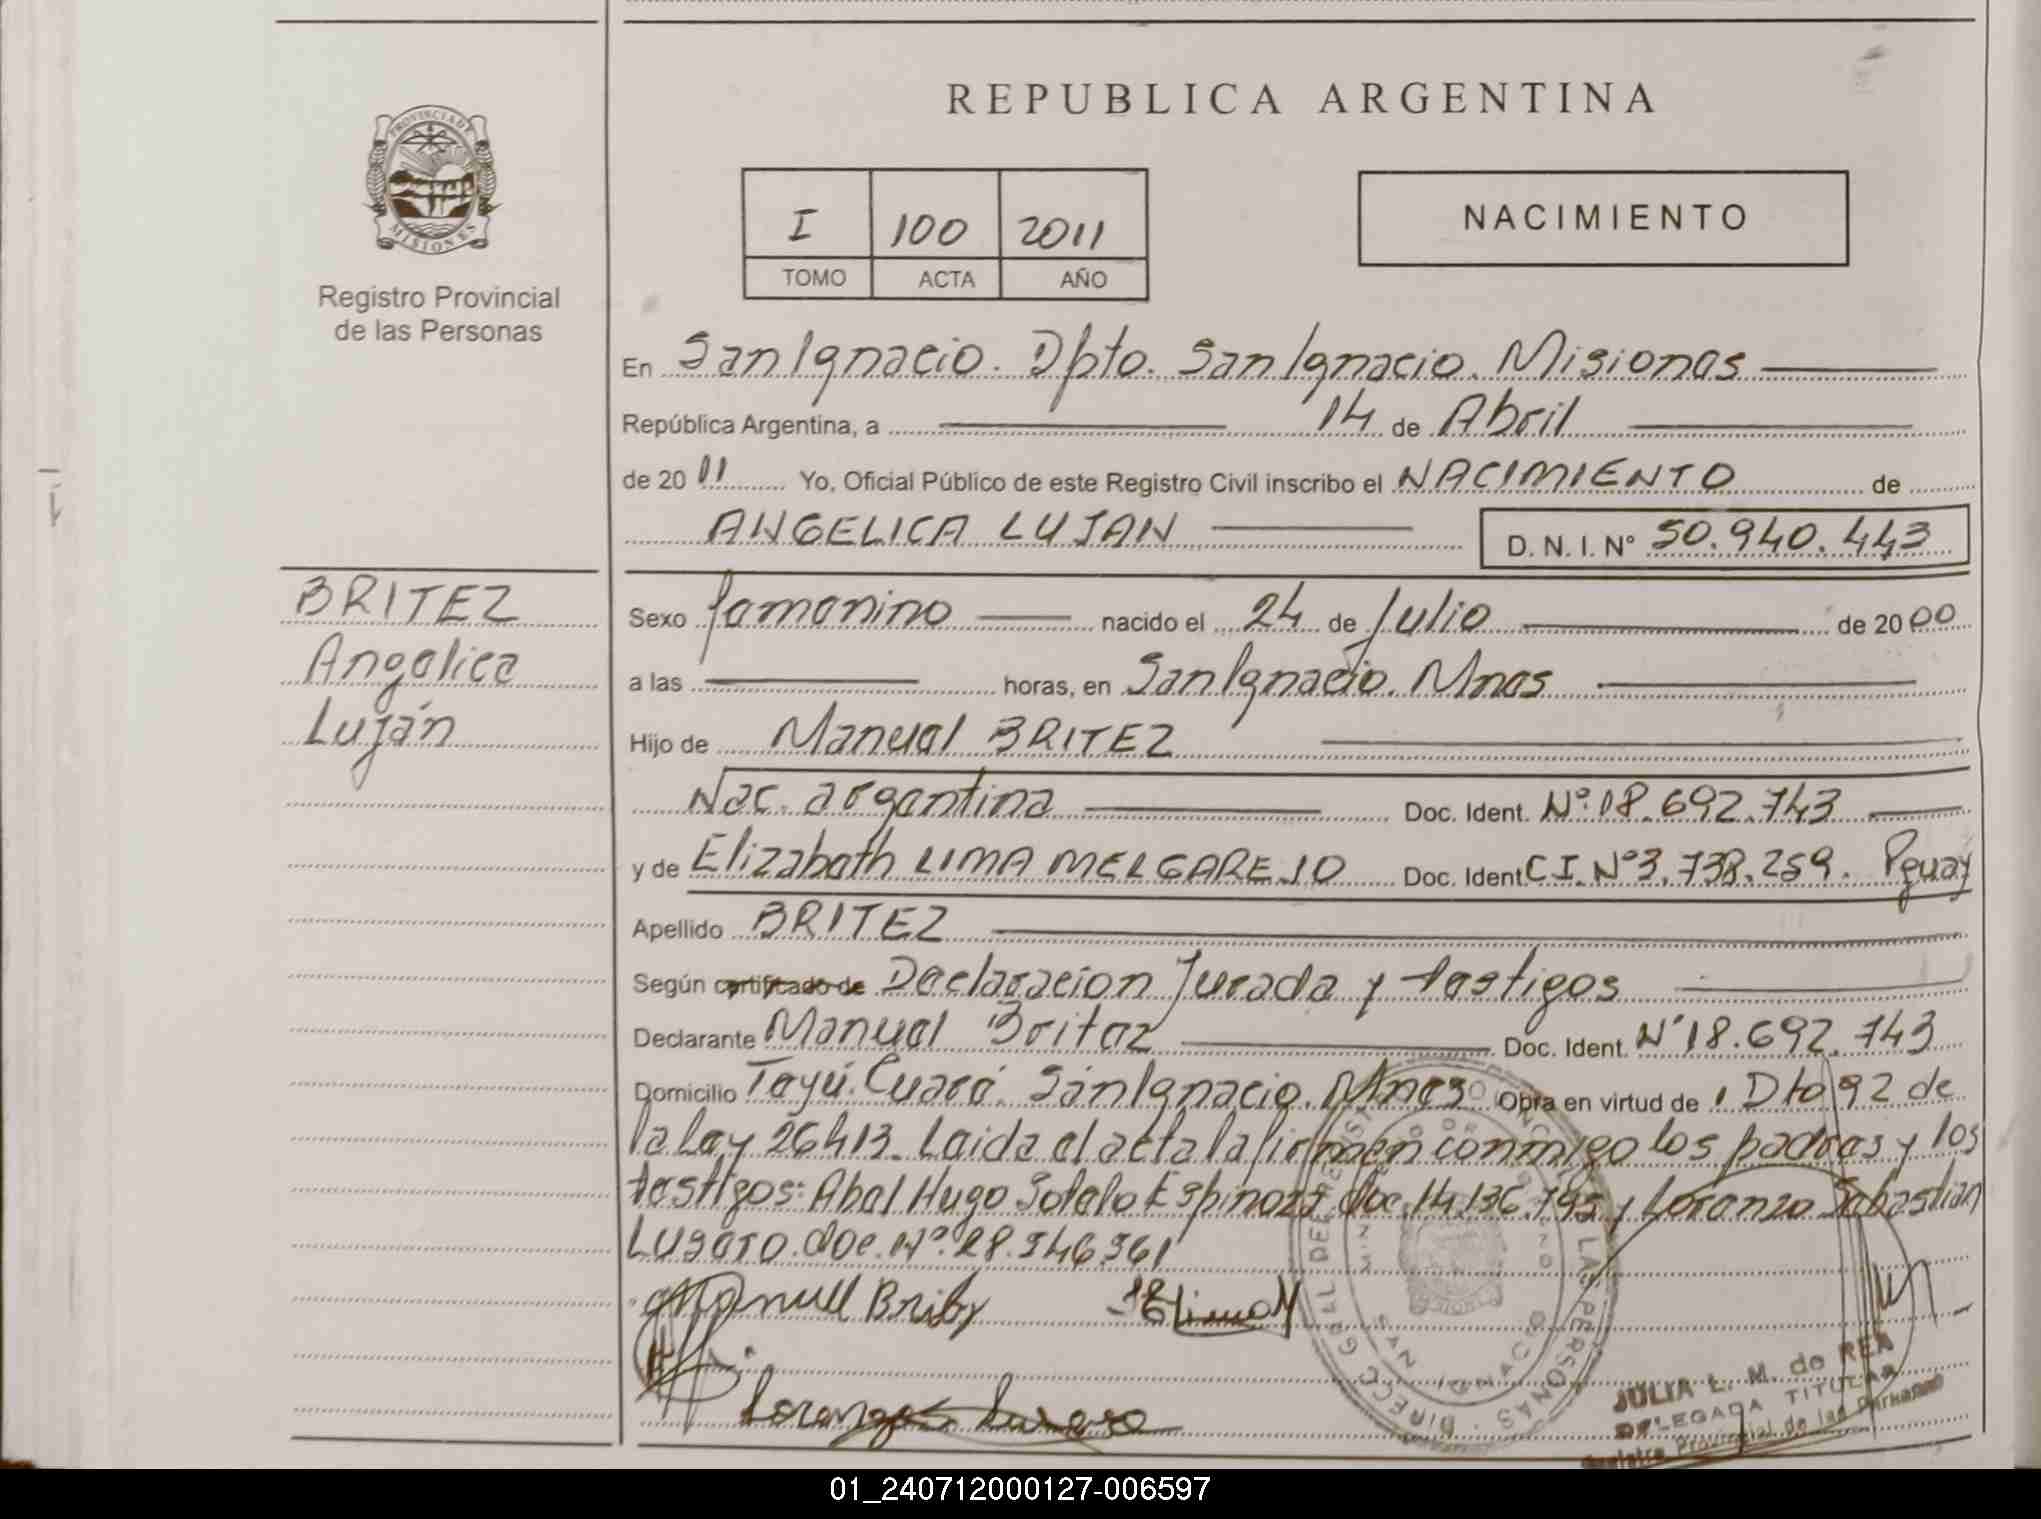 REPUBLICA ARGENTINA
PROVINCIA DE
MISIONES
Registro Provincial
de las Personas
I 100 2011
TOMO ACTA AÑO
NACIMIENTO
En San Ignacio. Dpto. San Ignacio. Misiones
República Argentina, a 14 de Abril
de 2011 Yo, Oficial Público de este Registro Civil inscribo el NACIMIENTO de
ANGELICA LUJAN D. N. I. Nº 50.940.443
BRITEZ
Angelica
Luján
Sexo femenino nacido el 24 de Julio de 2000
a las horas, en San Ignacio. Mnes
Hijo de Manuel BRITEZ
Nac. argentina Doc. Ident. Nº 18.692.743
y de Elizabeth LIMA MELGAREJO Doc. Ident C I. Nº 3.738.259. Pguay
Apellido BRITEZ
Según certificado de Declaracion Jurada y testigos
Declarante Manuel Britez Doc. Ident. Nº 18.692.743
Domicilio Teyú Cuaré. San Ignacio. Mnes Obra en virtud de Dto 92 de
la Ley 26413. Leida el acta la firman conmigo los padres y los
testigos: Abel Hugo Sotelo Espinoza doc. 14.136.795 y Lorenzo Sebastian
Lugaro. doc. Nº. 28.946.961
Manuel
Lorenzo
DIRECC GRAL DE REGIST LAS PERSONAS
SAN IGNACIO
JULIA L. M. de REA
DELEGADA TITULAR
Registro Provincial de las Personas
01_240712000127-006597